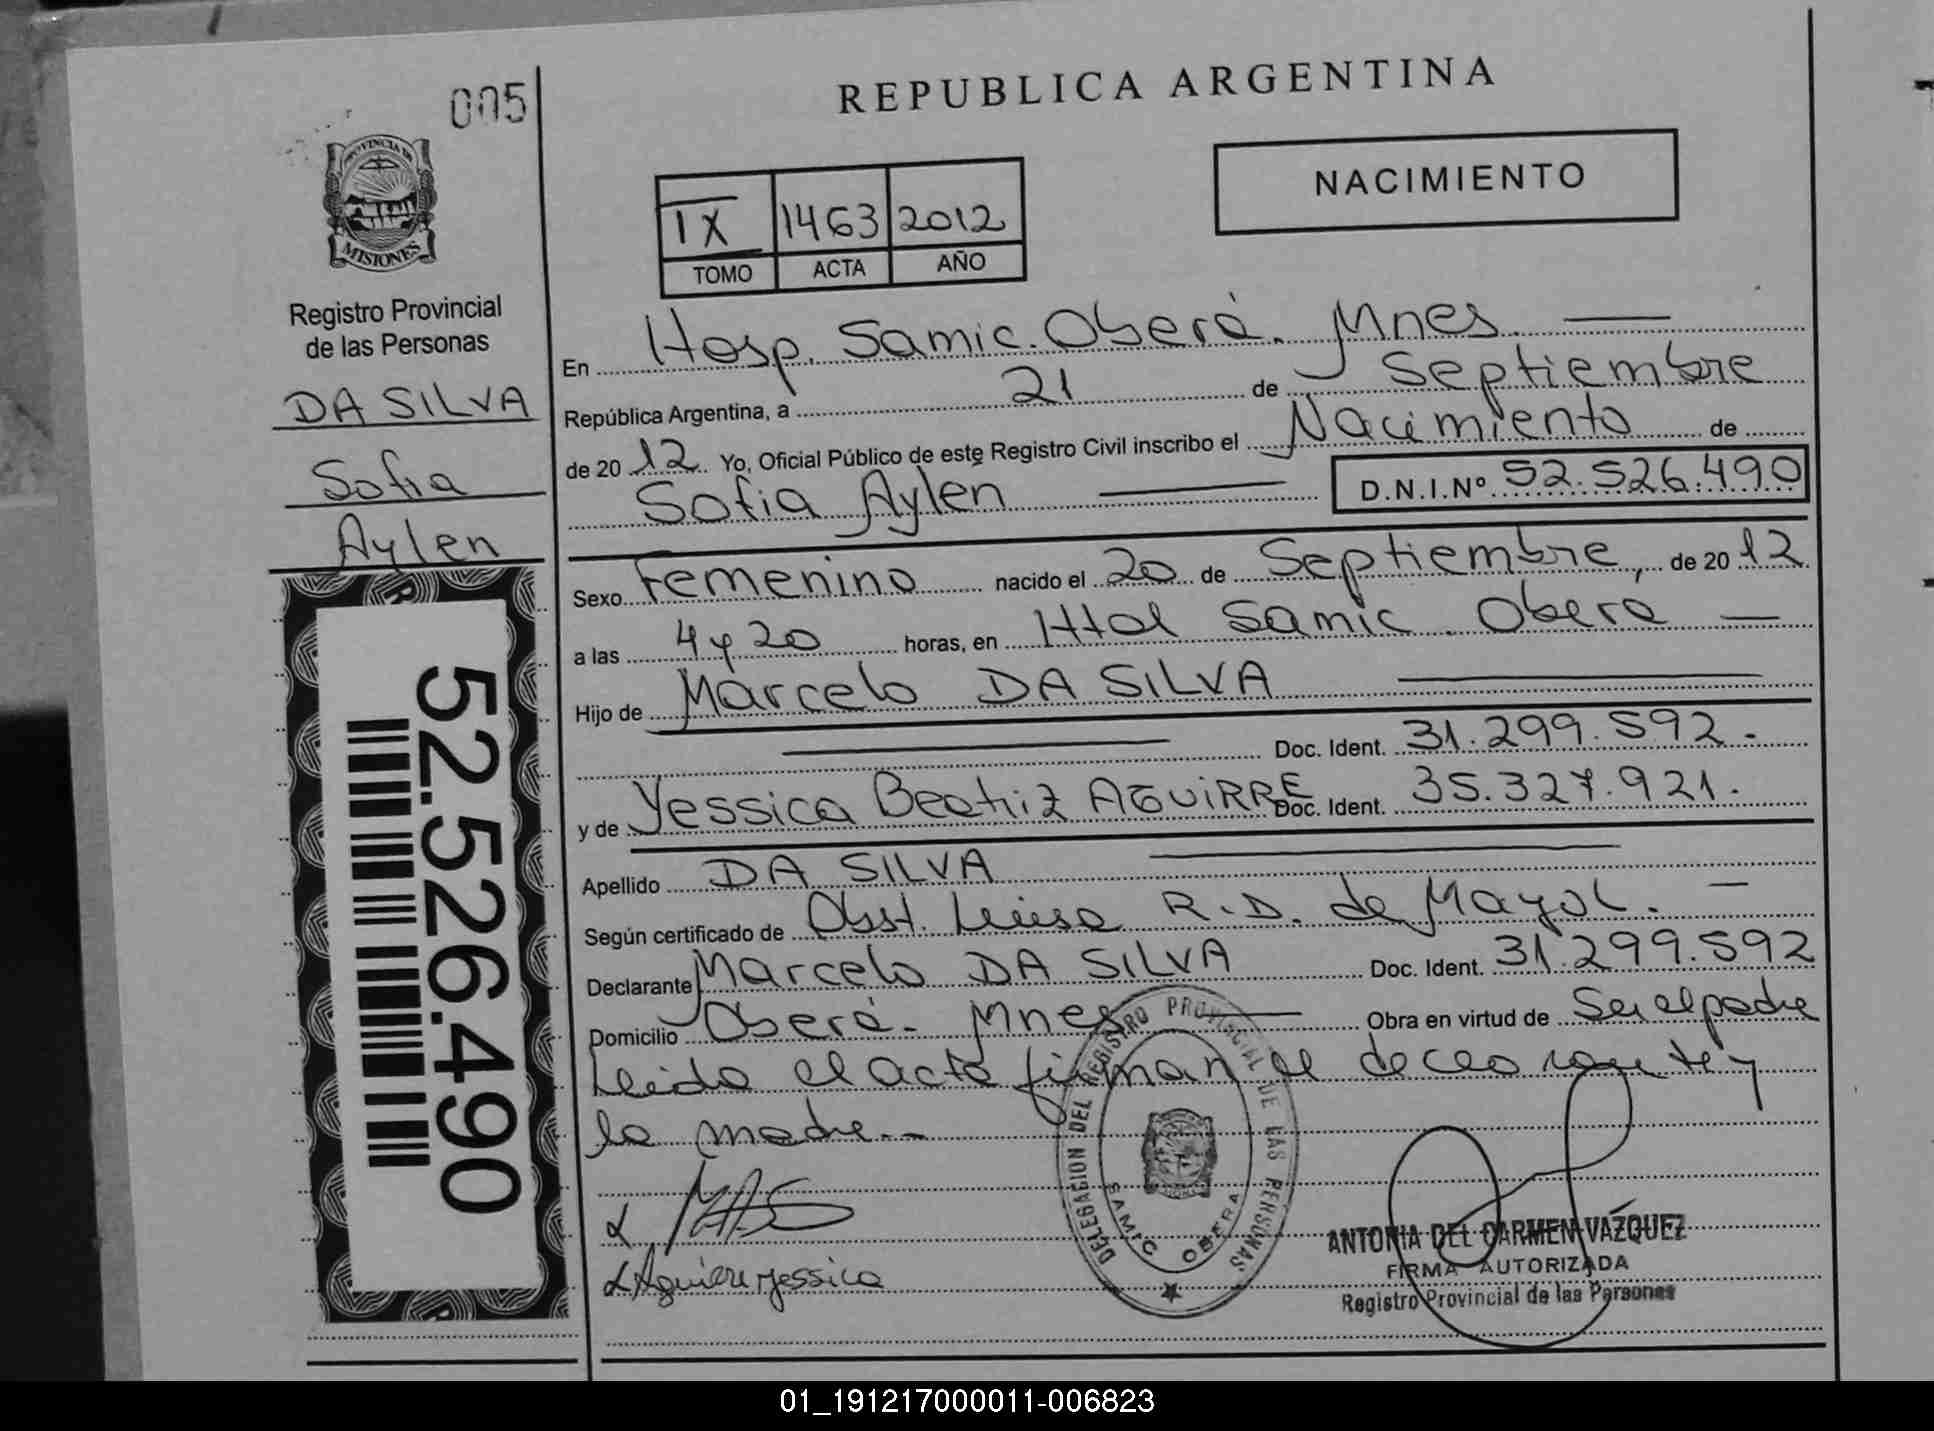 005
REPUBLICA ARGENTINA
PROVINCIA DE
MISIONES
Registro Provincial
de las Personas
DA SILVA
Sofia
Aylen
52.526.490
IX 1463 2012
TOMO ACTA AÑO
NACIMIENTO
En Hosp. Samic. Oberá. Mnes.
República Argentina, a 21 de Septiembre
de 2012 Yo, Oficial Público de este Registro Civil inscribo el Nacimiento de
Sofia Aylen D.N.I.Nº 52.526.490
Sexo Femenino nacido el 20 de Septiembre, de 2012
a las 4 y 20 horas, en Httal Samic. Obera
Hijo de Marcelo DA SILVA
Doc. Ident. 31.299.592.
y de Yessica Beatriz AGUIRRE Doc. Ident. 35.327.921.
Apellido DA SILVA
Según certificado de Obst. Luisa R.D. de Mayol.
Declarante Marcelo DA SILVA Doc. Ident. 31.299.592
Domicilio Oberá. Mnes Obra en virtud de Ser el padre
Leido el acta firman el declarante y
la madre.-
DELEGACION DEL REGISTRO PROVINCIAL DE LAS PERSONAS
SAMIC OBERA
Aguirre Yessica
ANTONIA DEL CARMEN VAZQUEZ
FIRMA AUTORIZADA
Registro Provincial de las Personas
01_191217000011-006823